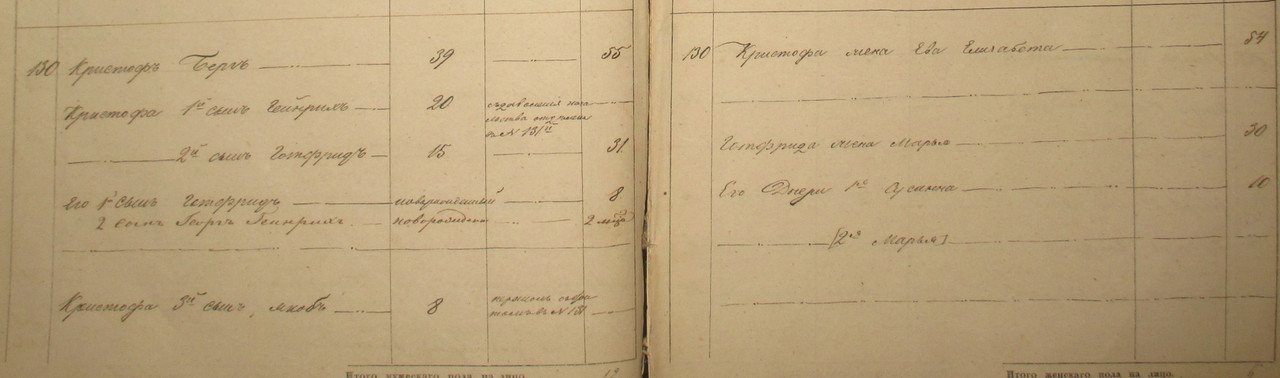 130 Кристофъ Бергъ 39 55
Кристофа 1й сынъ Гейнрихъ 20
въ № 131й
2й сынъ Готфридъ 15 31
Его 1 сынъ Готфридъ новорожденный 8
2 сынъ Георгъ Гейнрихъ новорожден 2 месяца
Кристофа 3й сынъ, Якобъ 8
въ № 131
Итого мужескаго пола на лицо. 12
130 Кристофа жена Ева Елизабета 54
Готфрида жена Марья 30
Его Дочери 1я Сусанна 10
[2я Марья]
Итого женскаго пола на лицо. 6